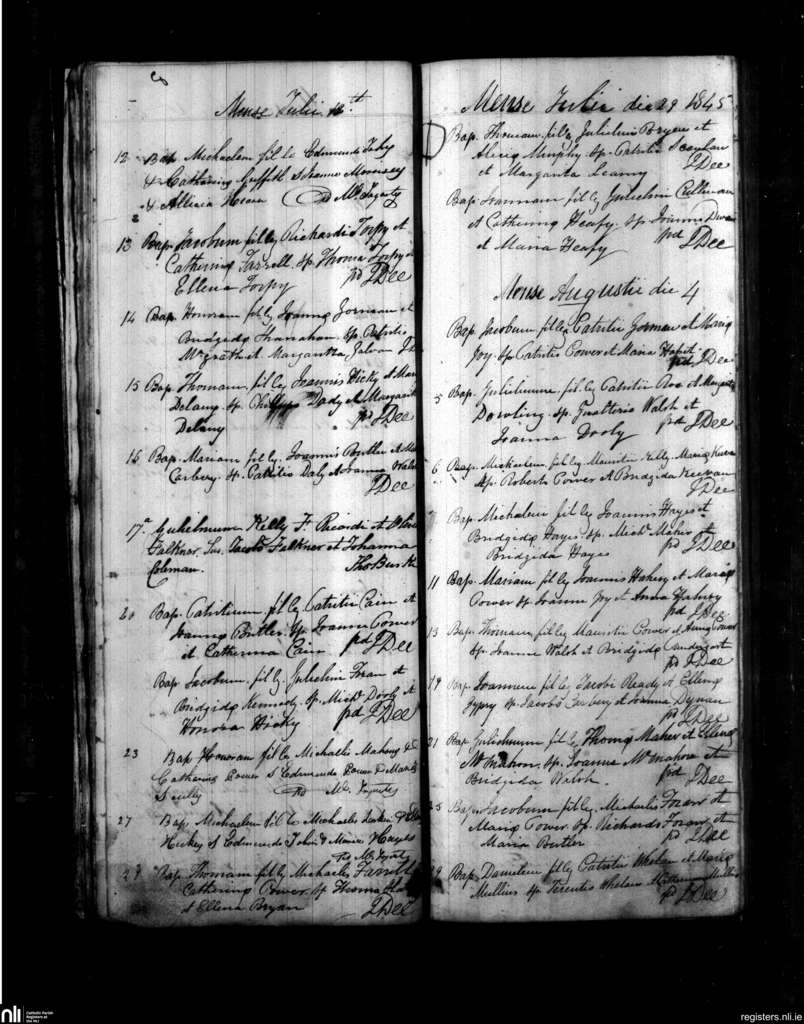 Mense Julii 11th
12 Bap. Michaelem fil. L. Edmundi
& Catharina Griffith S. Joanne Morrissey
& Allicia Pd. Mc Fogarty
13 Bap. Jacobum fil. leg. Richardi Torpy et
Catherina Farrell. Sp. Thoma Torpy et
Ellena Torpy pd JDee
14 Bap. Honoram fil. leg. Joannis Gorman et
Bridgida Shanahan. Sp. Patritio
McGrath et Margaritta J Dee
15 Bap. Thomam fil. leg. Joannis Hicky et Maria
Delany Sp. Daly et Margarit
Delany pd JDee
15 Bap. Mariam fil. leg. Joannis Butler et
Carbery. Sp. Patritio Daly et Joanna
JDee
17a Gulielmum Kelly F. Ricardi et
Falkner Sus. Jacob Falkner et Johanna
Coleman. Thos Burke
20 Bap. Patritium fil. leg. Patritii Cain et
Joanna Butler. Sp. Joanne Power
et Catherina Cain pd JDee
Bap. Jacobum fil. leg. Julielmi Foran et
Bridgida Kennedy. Sp. Michl Dooly et
Honora Hicky pd JDee
23 Bap Honoram fil L. Michaelis Mahony &
Catharina Power S Edmundo Power & Maria
Scully Pd Mc Fogarty
27 Bap. Michaelem fil L Michaelis &
Hickey S Edmundo & Maria Hayes
Pd Mc Fogarty
29 Bap. Thomam fil leg Michaelis Farrell
Catherina Power. Sp Thoma
et Ellena Bryan JDee
Mense Julii die 29 1845
Bap. Thomam. fil. leg. Julielmi Bryan et
Alicia Murphy Sp. Patritio Scanlan
et Margarita Leamy JDee
Bap. Joannem fil leg Julielmi Cullinan
et Catherina Heafy. Sp. Joannis
et Maria Heafy pd JDee
Mense Augustii die 4
Bap. Jacobum. fil. leg. Patritii Gorman et Maria
Joy. Sp Patritio Power et Maria pd JDee
5 Bap. Julielmum. fil leg Patritii Roe et Margarita
Dowling. Sp. Gualterio Walsh et
Joanna Dooly pd JDee
6 Bap. Michaelem fil. leg. Mauritii Kelly Maria
Sp. Roberto Power et Bridgida Keevan
JDee
Bap. Michaelem fil leg Joannis Hayes et
Bridgida Hayes. Sp. Michl Maher et
Bridgida Hayes pd JDee
11 Bap. Mariam fil leg Joannis Hahesy et Maria
Power Sp Joanne Joy et Anna Hahesy
pd JDee
13 Bap. Thomam fil leg Mauritii Power et Anna Power
Sp. Joanne Walsh et Bridgida Prendergast
pd JDee
19 Bap. Joannem fil leg Jacobi Ready et Ellena
Sp. Jacobo Carbery et Joanna Dynan
pd JDee
21 Bap. Julielmum fil leg Thoma Maher et Ellena
McMahon. Sp. Joanne McMahon et
Bridgida Welsh. pd JDee
25 Bap. Jacobum fil leg. Michaelis Foran et
Maria Power. Sp. Richardo Foran et
Maria Butler pd JDee
29 Bap. Danielem fil leg Patritii Whelan et Maria
Mullins Sp. Terentio Whelan et Catherina Mullins
pd JDee
nli
Catholic Parish
Registers at
the NLI
registers.nli.ie